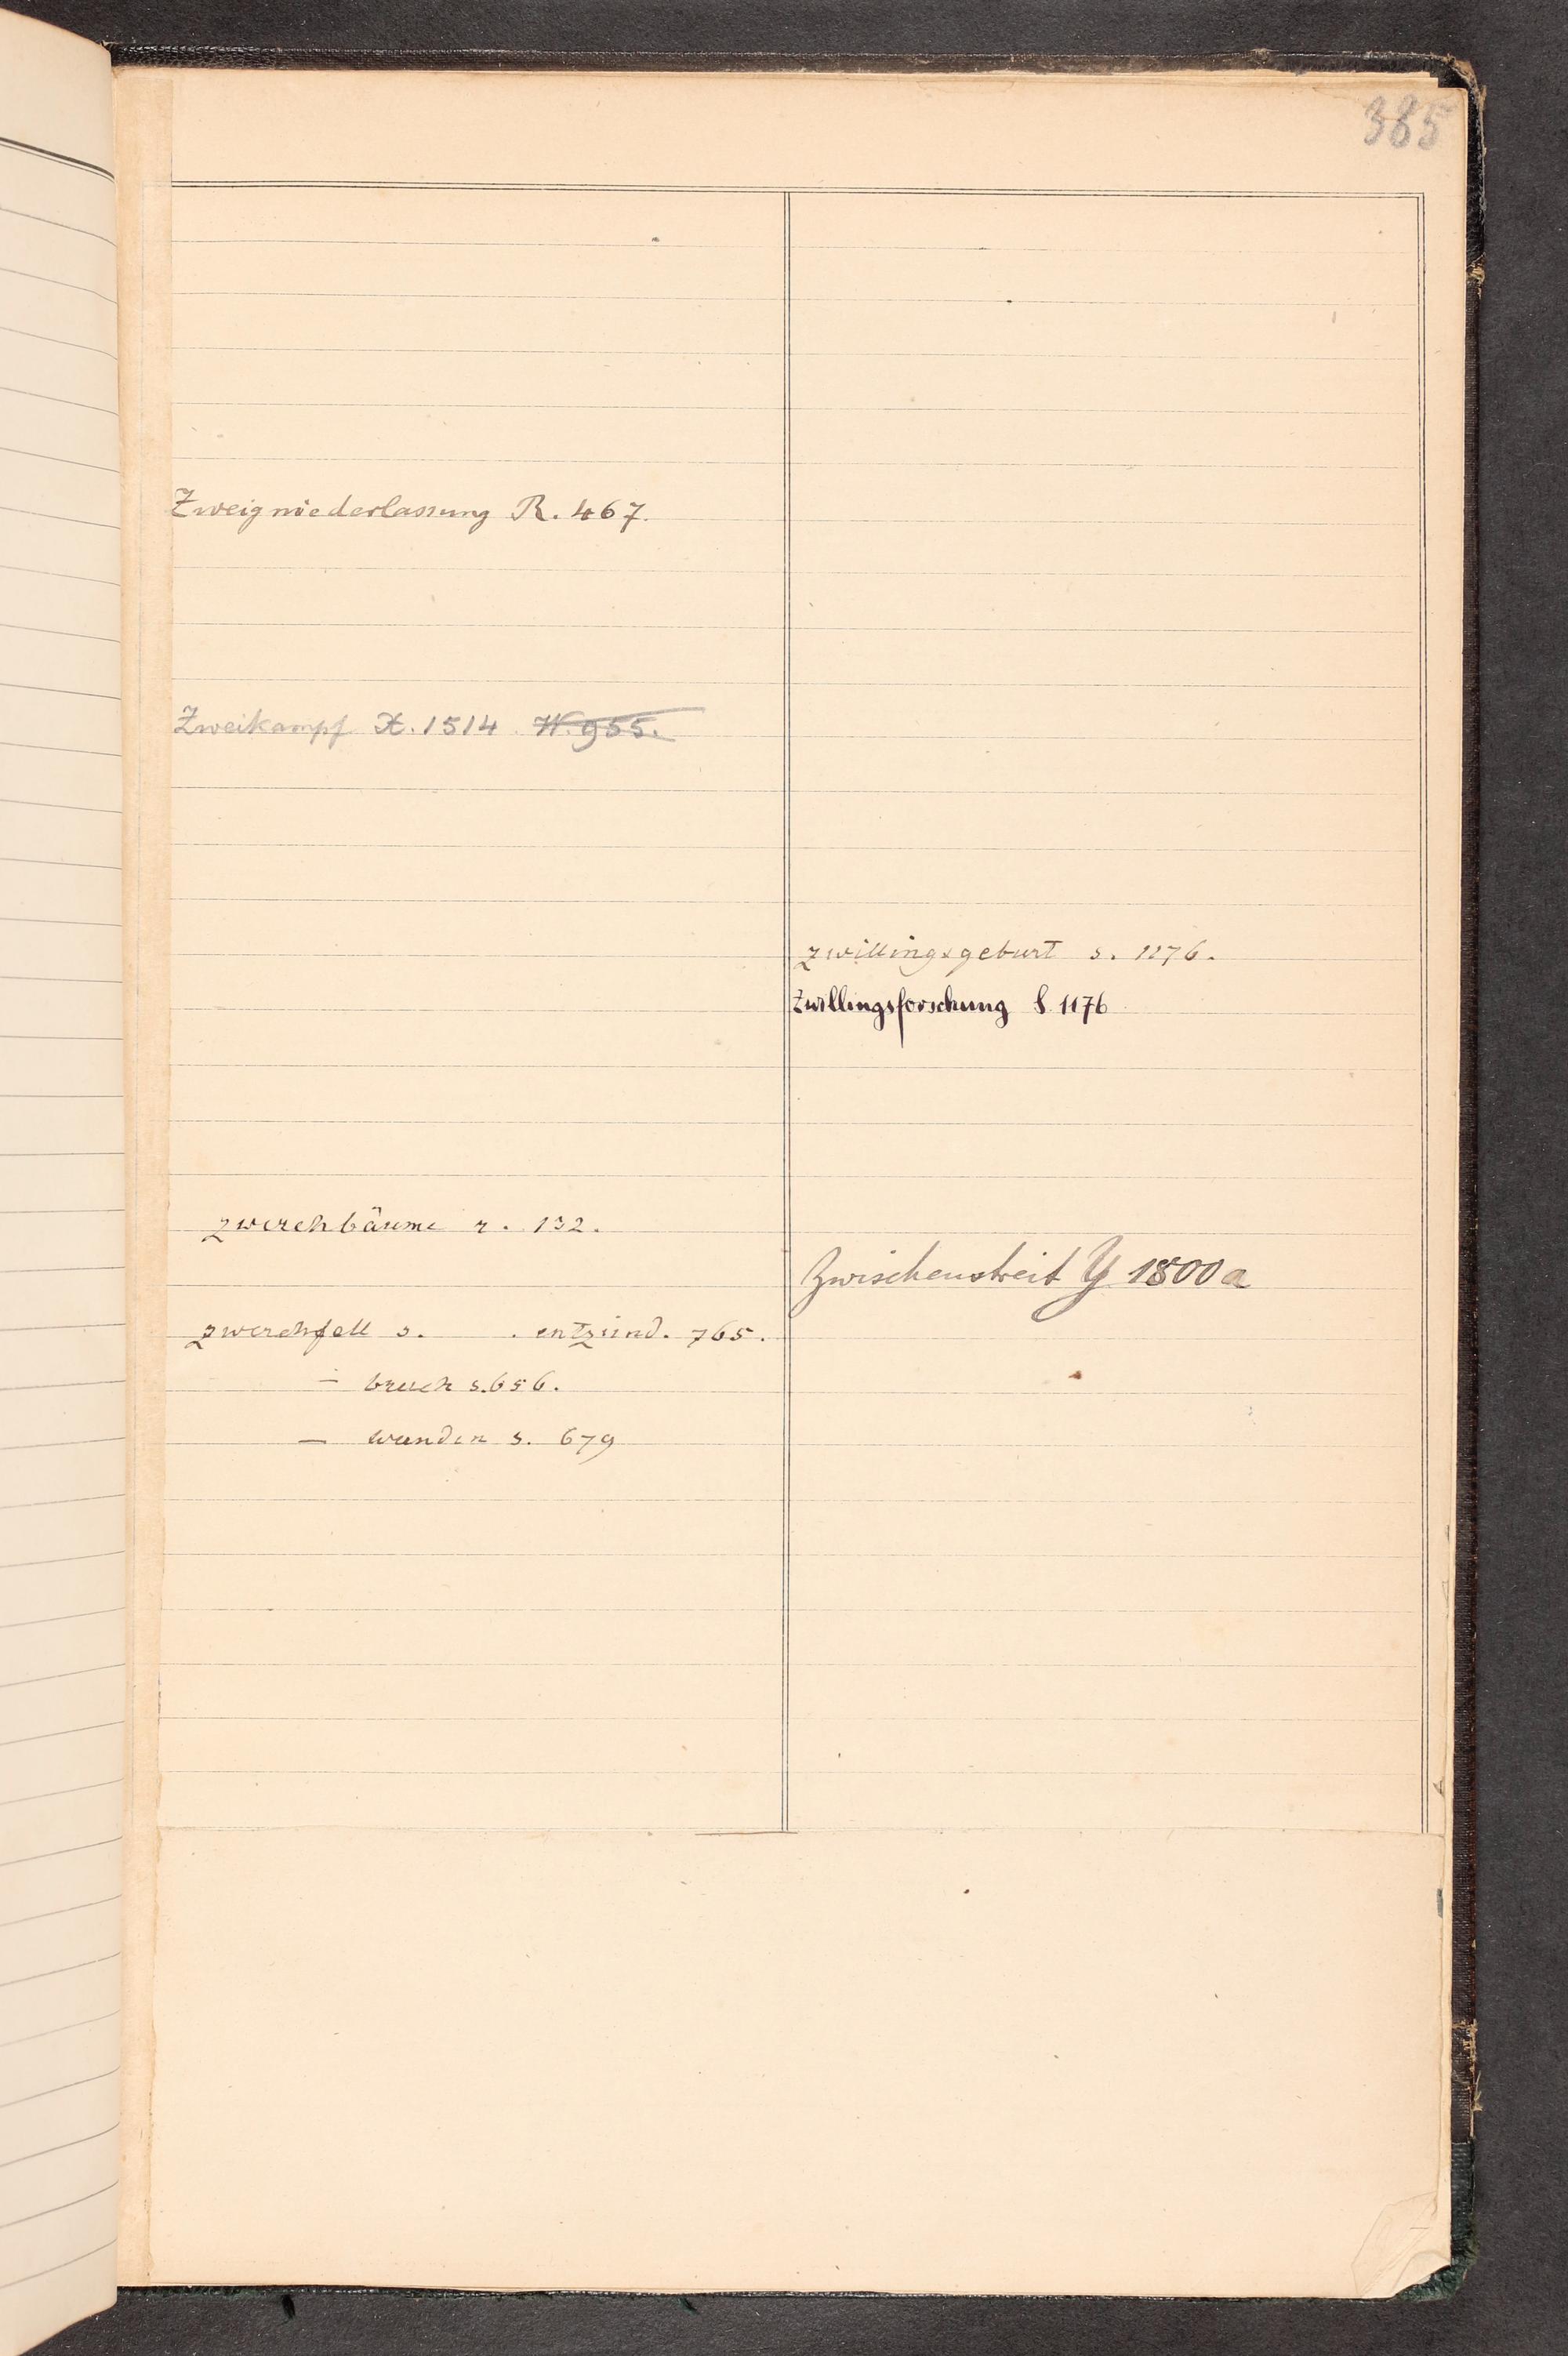 385
Zweigniederlassung R. 467.
Zweikampf X. 1514 W. 955.
zwerchbäume r. 132.
zwerchfell s. . entzünd. 765.
— bruch s. 656.
— wunden s. 679
zwillingsgeburt s. 1176.
Zwillingsforschung S. 1176
Zwischenstreit Y 1800a